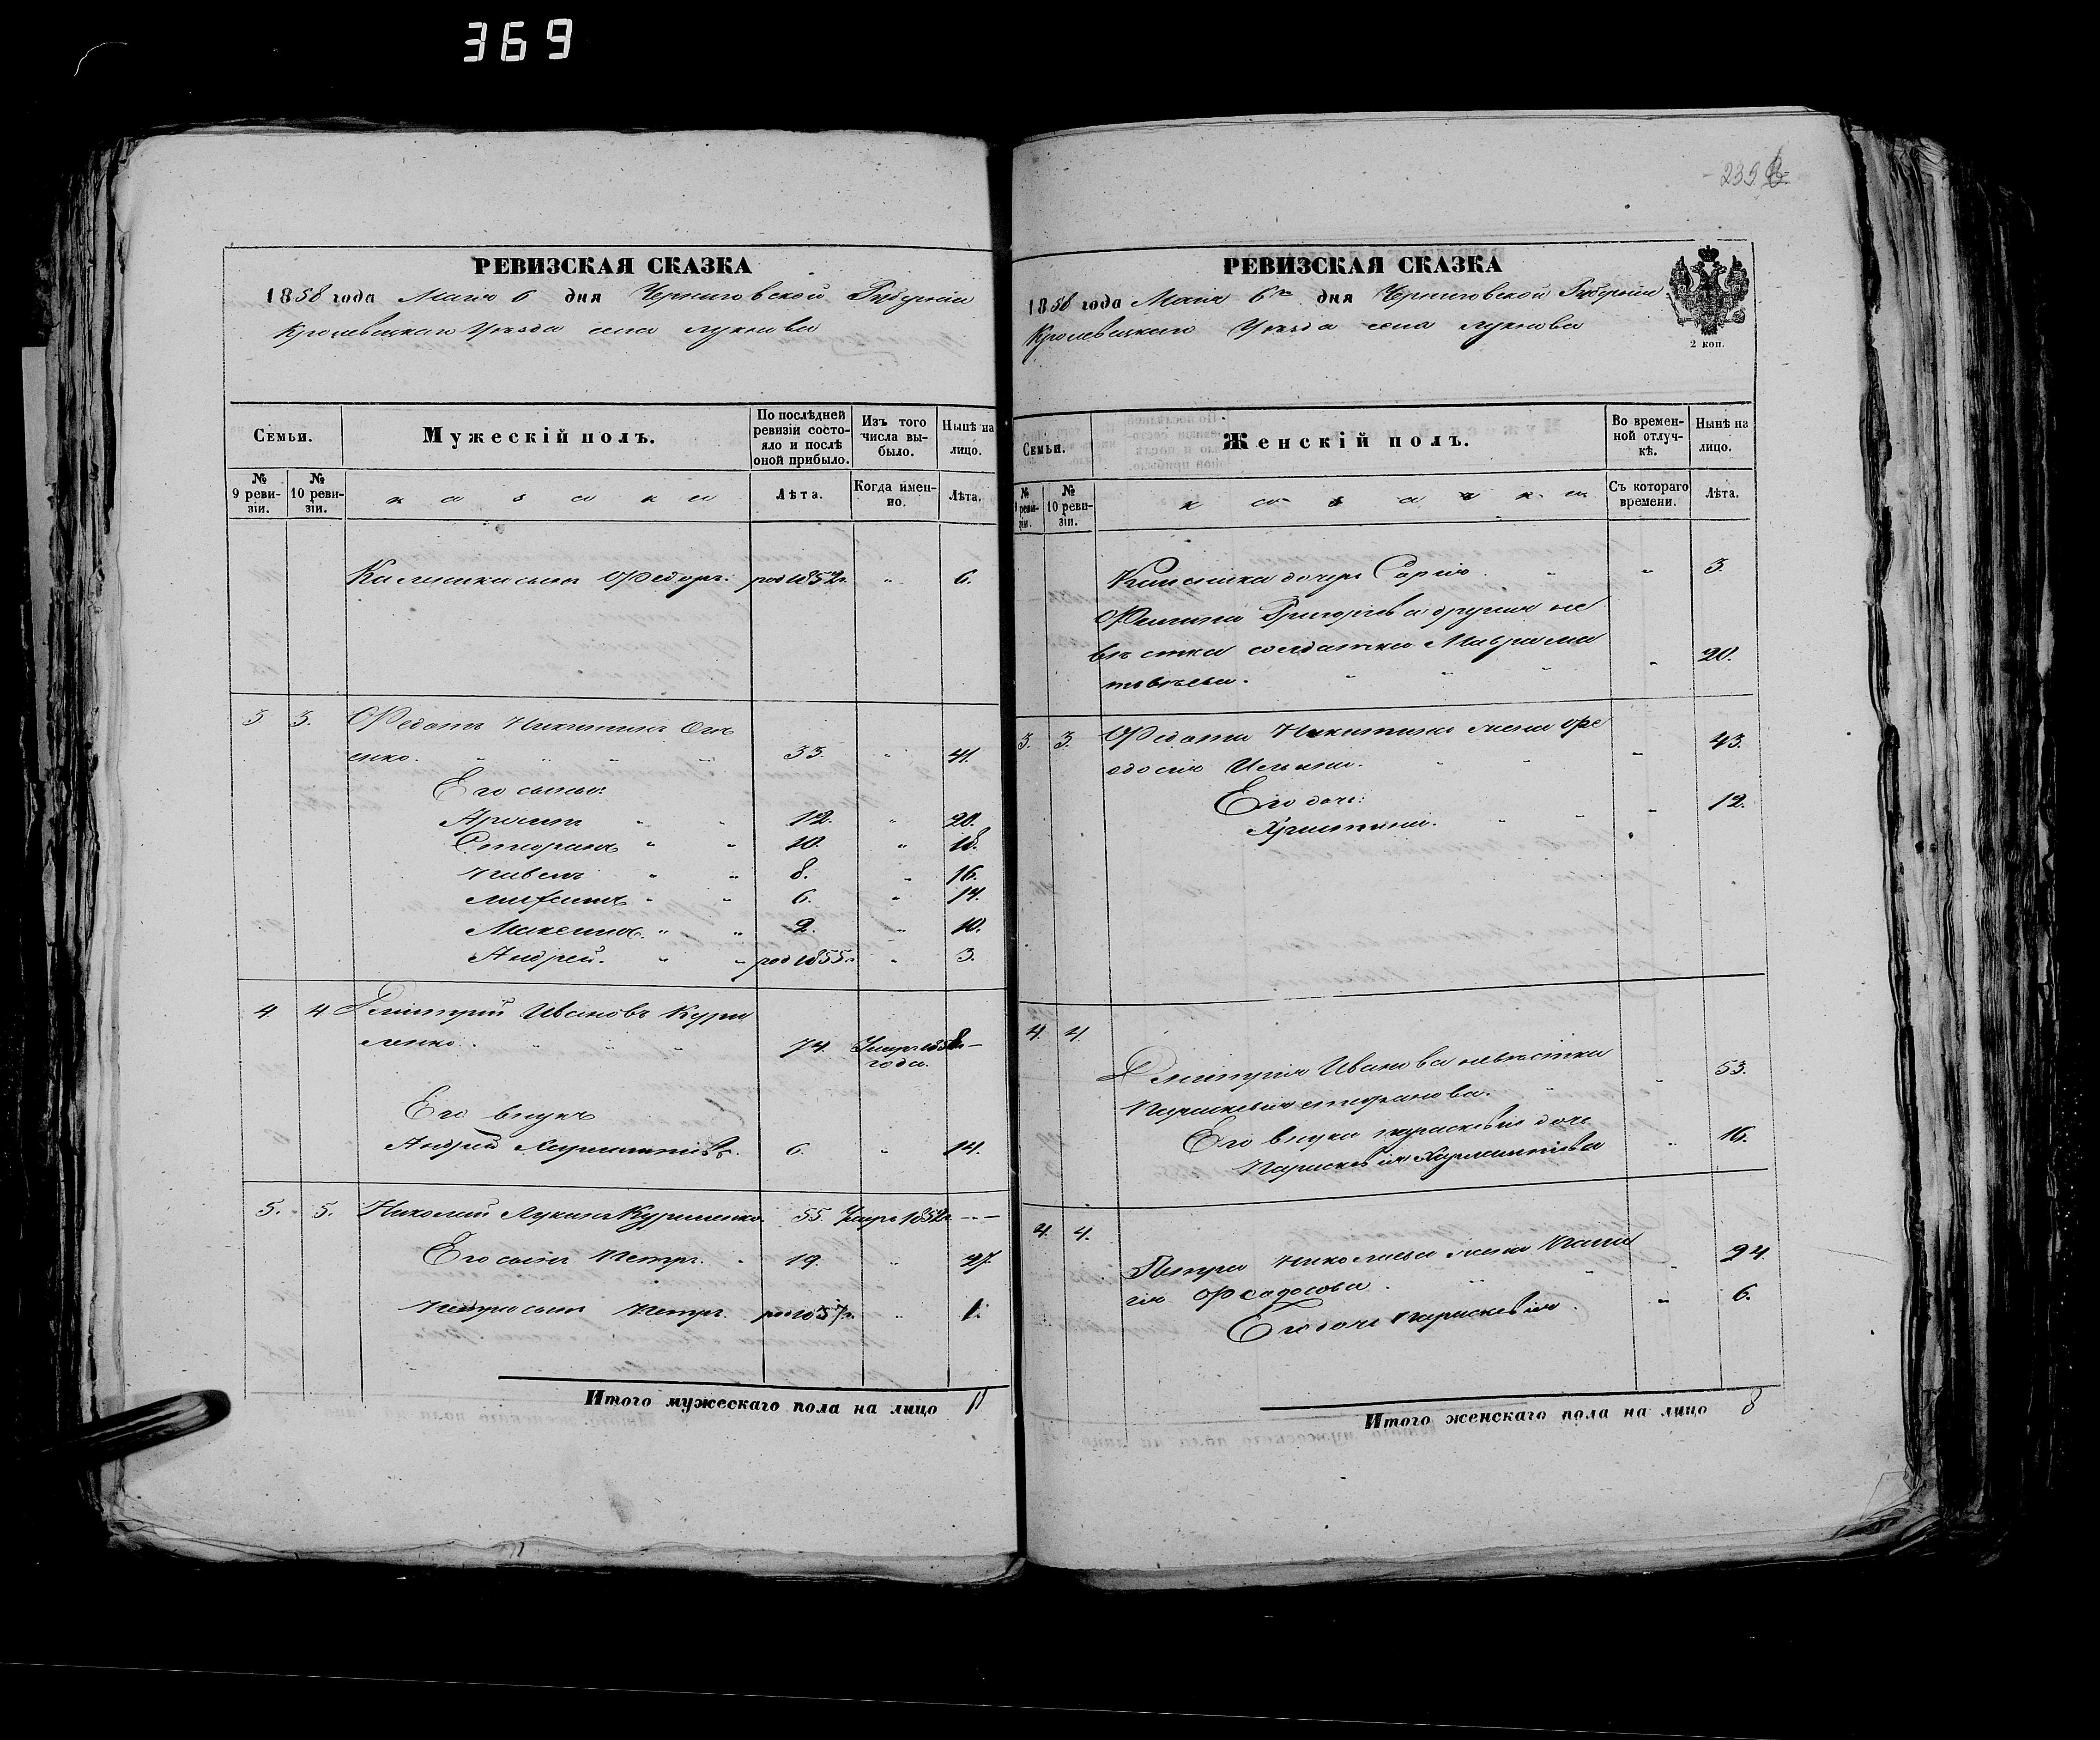 369
РЕВИЗСКАЯ СКАЗКА
1858 года Мая 6 дня Черниговской Губернии
Кролевецкаго Уезда села Лукнова
Семьи.
Мужескій полъ.
По послѣдней ревизіи состояло и послѣ оной прибыло.
Изъ того числа выбыло.
Нынѣ на лицо.
№ 9 ревизіи.
№ 10 ревизіи.
казаки
Лѣта.
Когда именно.
Лѣта.
сынъ Федоръ. род 1852г. " 6.
3 3. Федотъ Никитинъ
енко. 33. " 41.
Его сыны:
12. " 20.
Стефанъ " " 10. " 18.
Павелъ " " 8. " 16.
" " 6. " 14.
Максимъ " " 2. " 10.
Андрей. " " род 1855г. " 3.
4. 4 Дмитрий Ивановъ Кури
ленко. 74. Умеръ 1858 —
года.
Его внукъ
Андрей 6. " 14.
5. 5. Николай Лукинъ Куриленко 55. Умеръ 1852г. — —
Его сынъ Петръ. " 19. " 27.
Петра сынъ Петръ. род 1857г. " 1.
Итого мужескаго пола на лицо 11
235
РЕВИЗСКАЯ СКАЗКА
1858 года Мая 6го дня Черниговской Губернии
Кролевецкаго Уезда села Лукнова
2 коп.
Семьи.
Женскій полъ.
Во временной отлучкѣ.
Нынѣ на лицо.
№ 9 ревизіи.
№ 10 ревизіи.
Съ котораго времени.
Лѣта.
дочерь " " 3.
Григорьева другая не
вѣстка солдатка Мавра Ма
твѣева. " " " 20.
3. 3. Федота Никитина жена Фе
одосия Ильина. " " " 43.
Его дочь:
Христина. " " " 12.
4. 4.
Дмитрия Иванова невѣстка
Параскевия Стефанова. " 53.
Его внука Параскевия дочь
Параскевия " 16.
4. 4.
Петра Николаева жена
Федосова. " " 24.
Его дочь Параскевия. " 6.
Итого женскаго пола на лицо 8